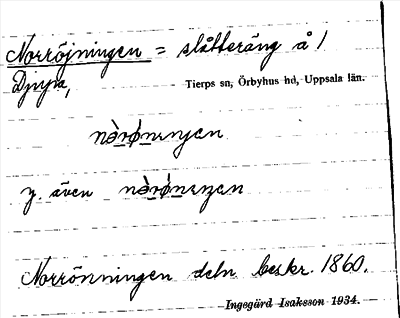 Norröjningen = slåtteräng å 1
Djupa,
Tierps sn, Örbyhus hd, Uppsala län.
nòrǿnıŋen
y. även nòrǿneŋen
Norrönningen deln beskr. 1860.
Ingegärd Isaksson 1934.